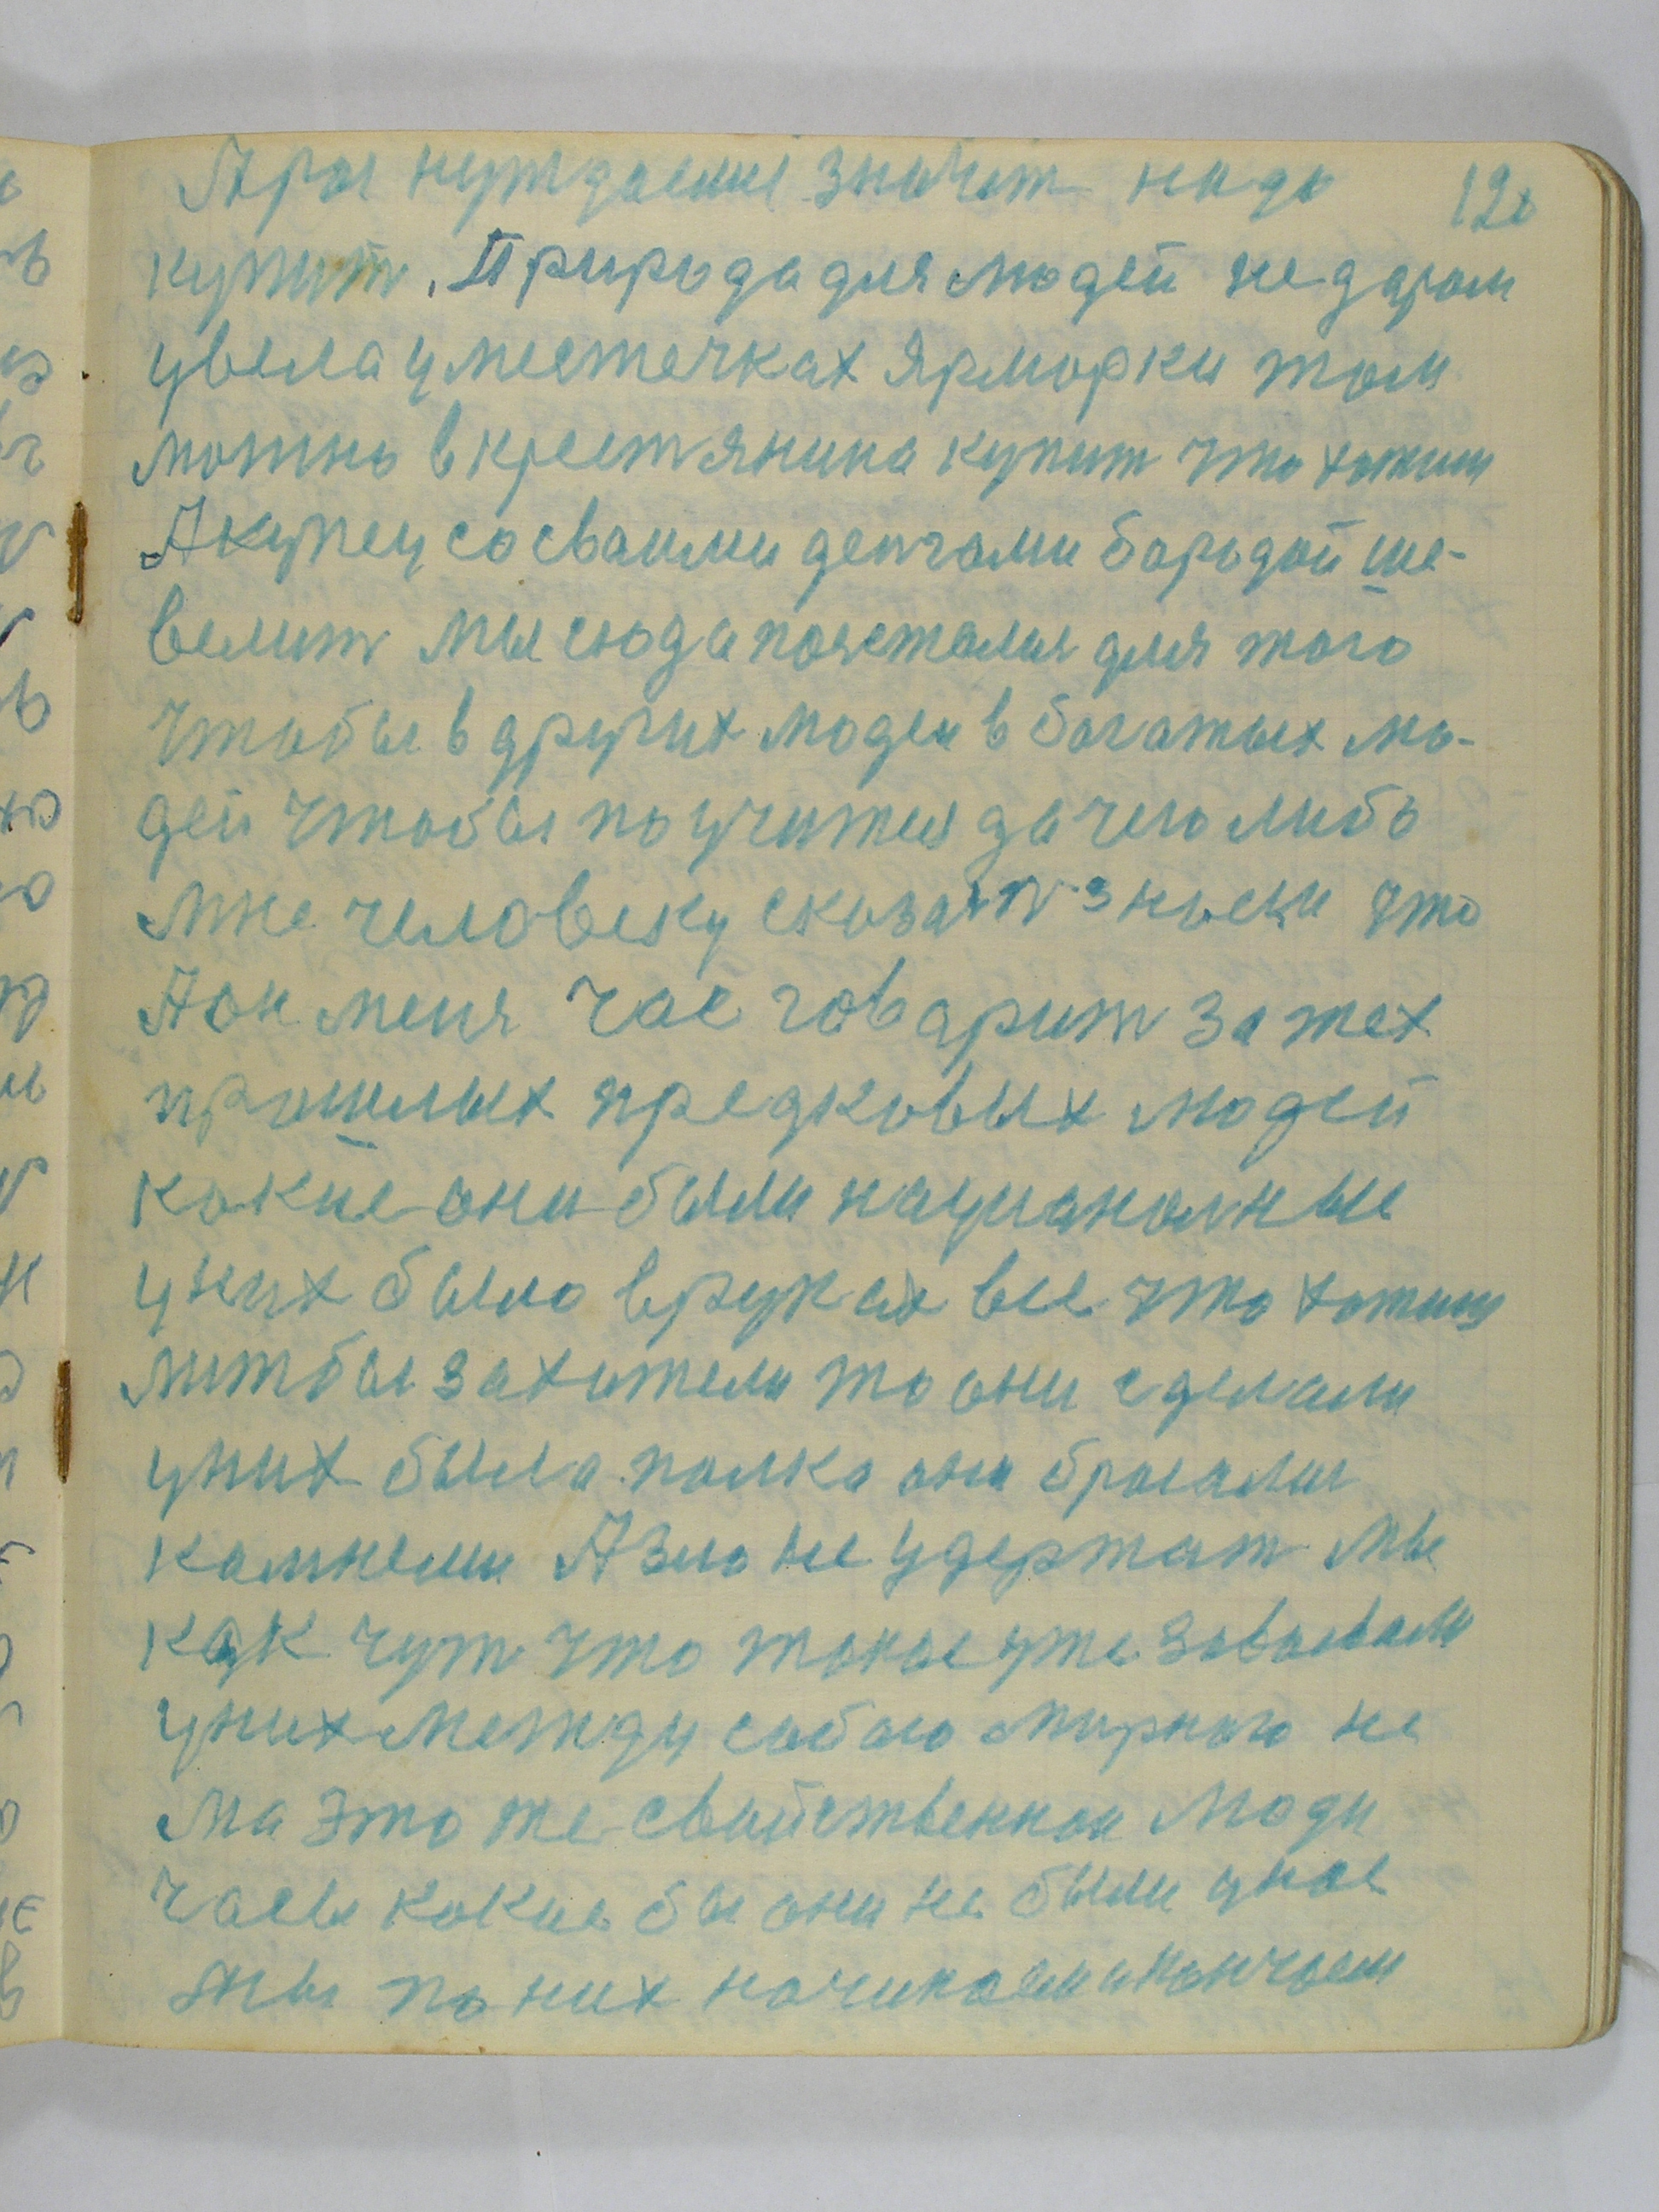 А раз нуждаеше значит надо 12
купит. Природа для людей не даром
увела у местечках ярморки там
можно в крестянина купит что хотиш
А купец со сваими денгами бародой ше-
велит мы сюда понстались для того
чтобы в других людей в богатых лю-
дей чтобы поучится да чего либо
мне человеку сказат зносци что
А он меня час говарит за тех
прошлых предковых людей
какие они были националные
у них было в руках все что хотиш
лишбы захотели то они сделали
у них была палка они бросалис
камнеми А зло не удержат мы
как чут что такое уже завоевали
у них между собою мирного не
ма это же свойственнои люди
часы какие бы они не были у нас
мы по них начинаем и кончаем